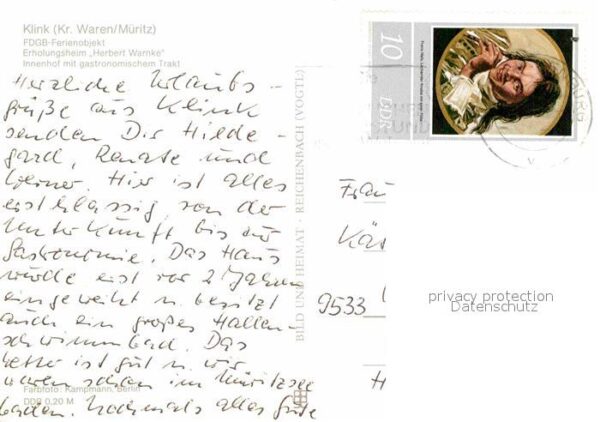 Klink (Kr. Waren/Müritz)
FDGB-Ferienobjekt
Erholungsheim „Herbert Warnke"
Innenhof mit gastronomischem Trakt
Herzliche Urlaubs-
grüße aus Klink
senden Dir Hilde-
gard, Renate und
Werner. Hier ist alles
erstklassig von der
Unterkunft bis zur
Gastronomie. Das Haus
wurde erst vor 2 Jahren
eingeweiht u. besitzt
auch ein großes Hallen-
schwimmbad. Das
Wetter ist gut u. wir
waren schon im Müritzsee
baden. Nochmals alles Gute
Farbfoto: Kampmann, Berlin
DDR 0,20 M
BILD UND HEIMAT · REICHENBACH (VOGTL)
10
DDR
Frau
Käs
9533
H
privacy protection
Datenschutz